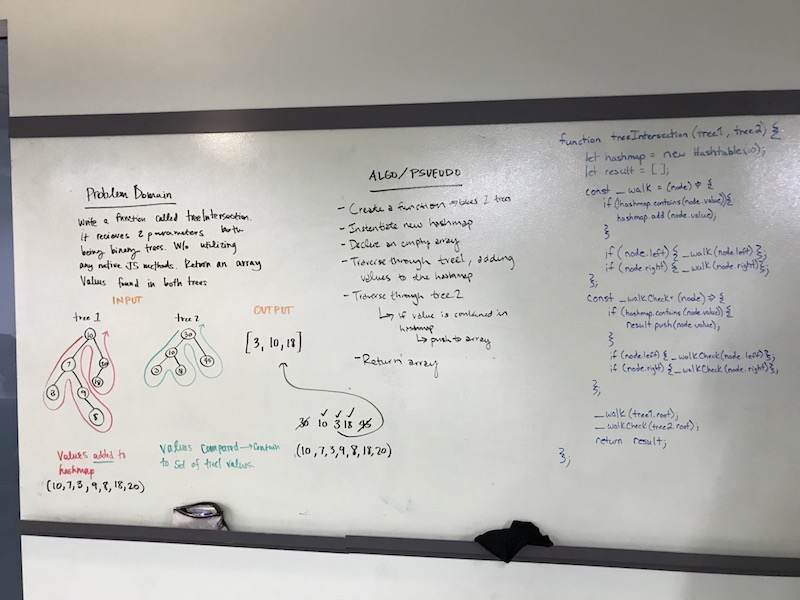 Problem Domain
Write a function called treeIntersection.
it recieves 2 parameters both
being binary trees. W/o utilizing
any native JS methods. Return an array
values found in both trees
INPUT
tree 1
10
7
20
3
9
18
8
tree 2
30
10
40
3
18
values added to
hashmap
(10,7,3,9,8,18,20)
values compared → contain
to set of tree1 values.
OUTPUT
[3,10,18]
10 3 18
(10,7,3,9,8,18,20)
ALGO/PSUEDO
- Create a function → takes 2 trees
- Instentiate new hashmap
- Declare an empty array
- Traverse through tree1, adding
values to the hashmap
- Traverse through tree 2
↳ if value is contained in
hashmap
↳ push to array
- Return array
function treeIntersection (tree1, tree2) {
let hashmap = new Hashtable(10);
let result = [];
const _walk = (node) => {
if (!hashmap.contains(node.value)){
hashmap.add(node.value);
}
}
if (node.left) { _walk(node.left) };
if (node.right) { _walk(node.right) };
};
const _walkCheck = (node) => {
if (hashmap.contains(node.value)) {
result.push(node.value);
}
}
if (node.left) { _walkCheck(node.left) };
if (node.right) { _walkCheck(node.right) };
};
_walk(tree1.root);
_walkCheck(tree2.root);
return result;
};